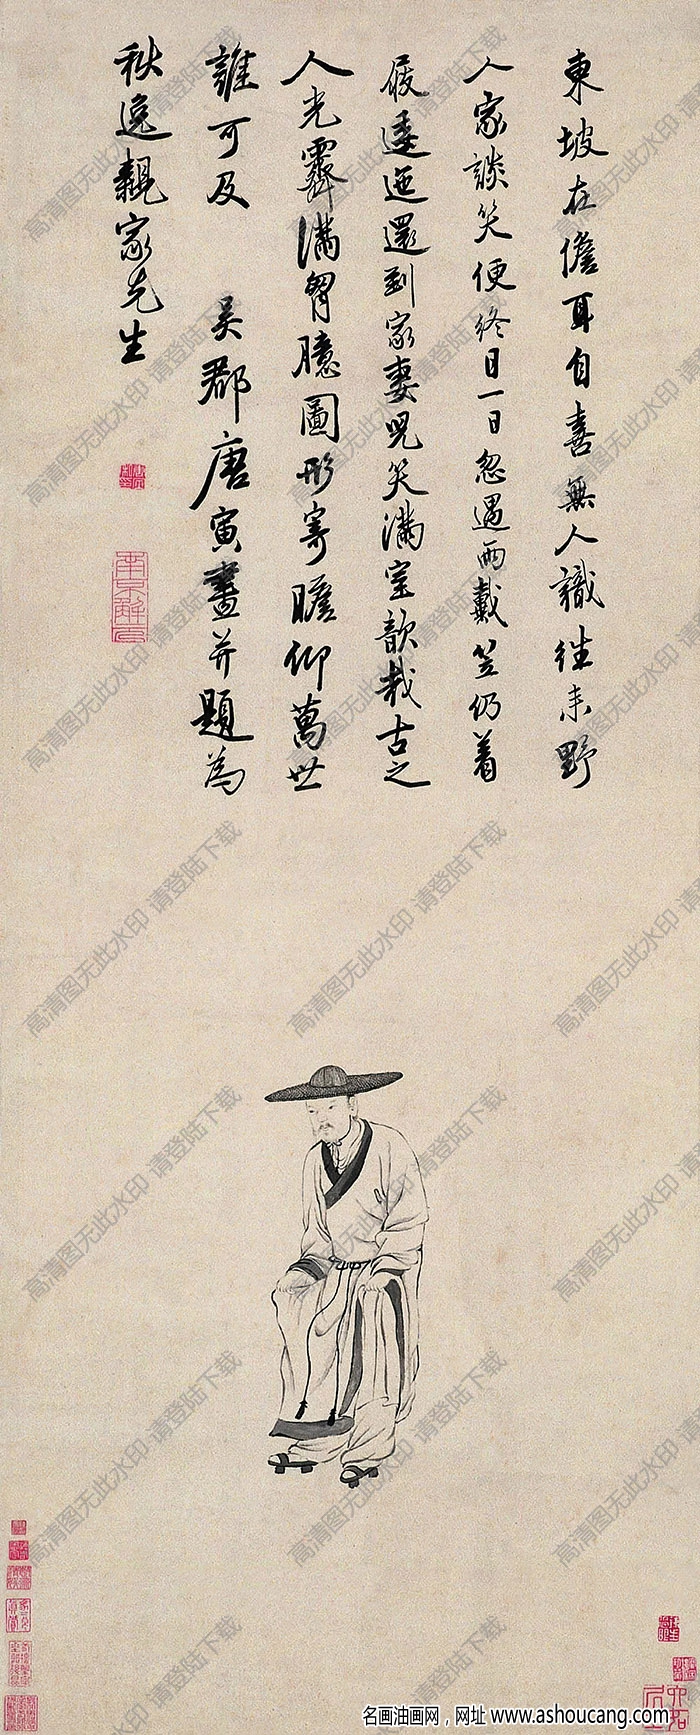 東坡在儋耳自喜無人識往来野
人家談笑便終日一日忽遇雨戴笠仍着
屐逶迤還到家妻児笑滿室歆哉古之
人光霽滿胷臆圖形寄瞻仰萬世
誰可及 吴郡唐寅畫并題為
秋逸親家先生
高清图无此水印·请登陆下载
名画油画网，网址 www.ashoucang.com